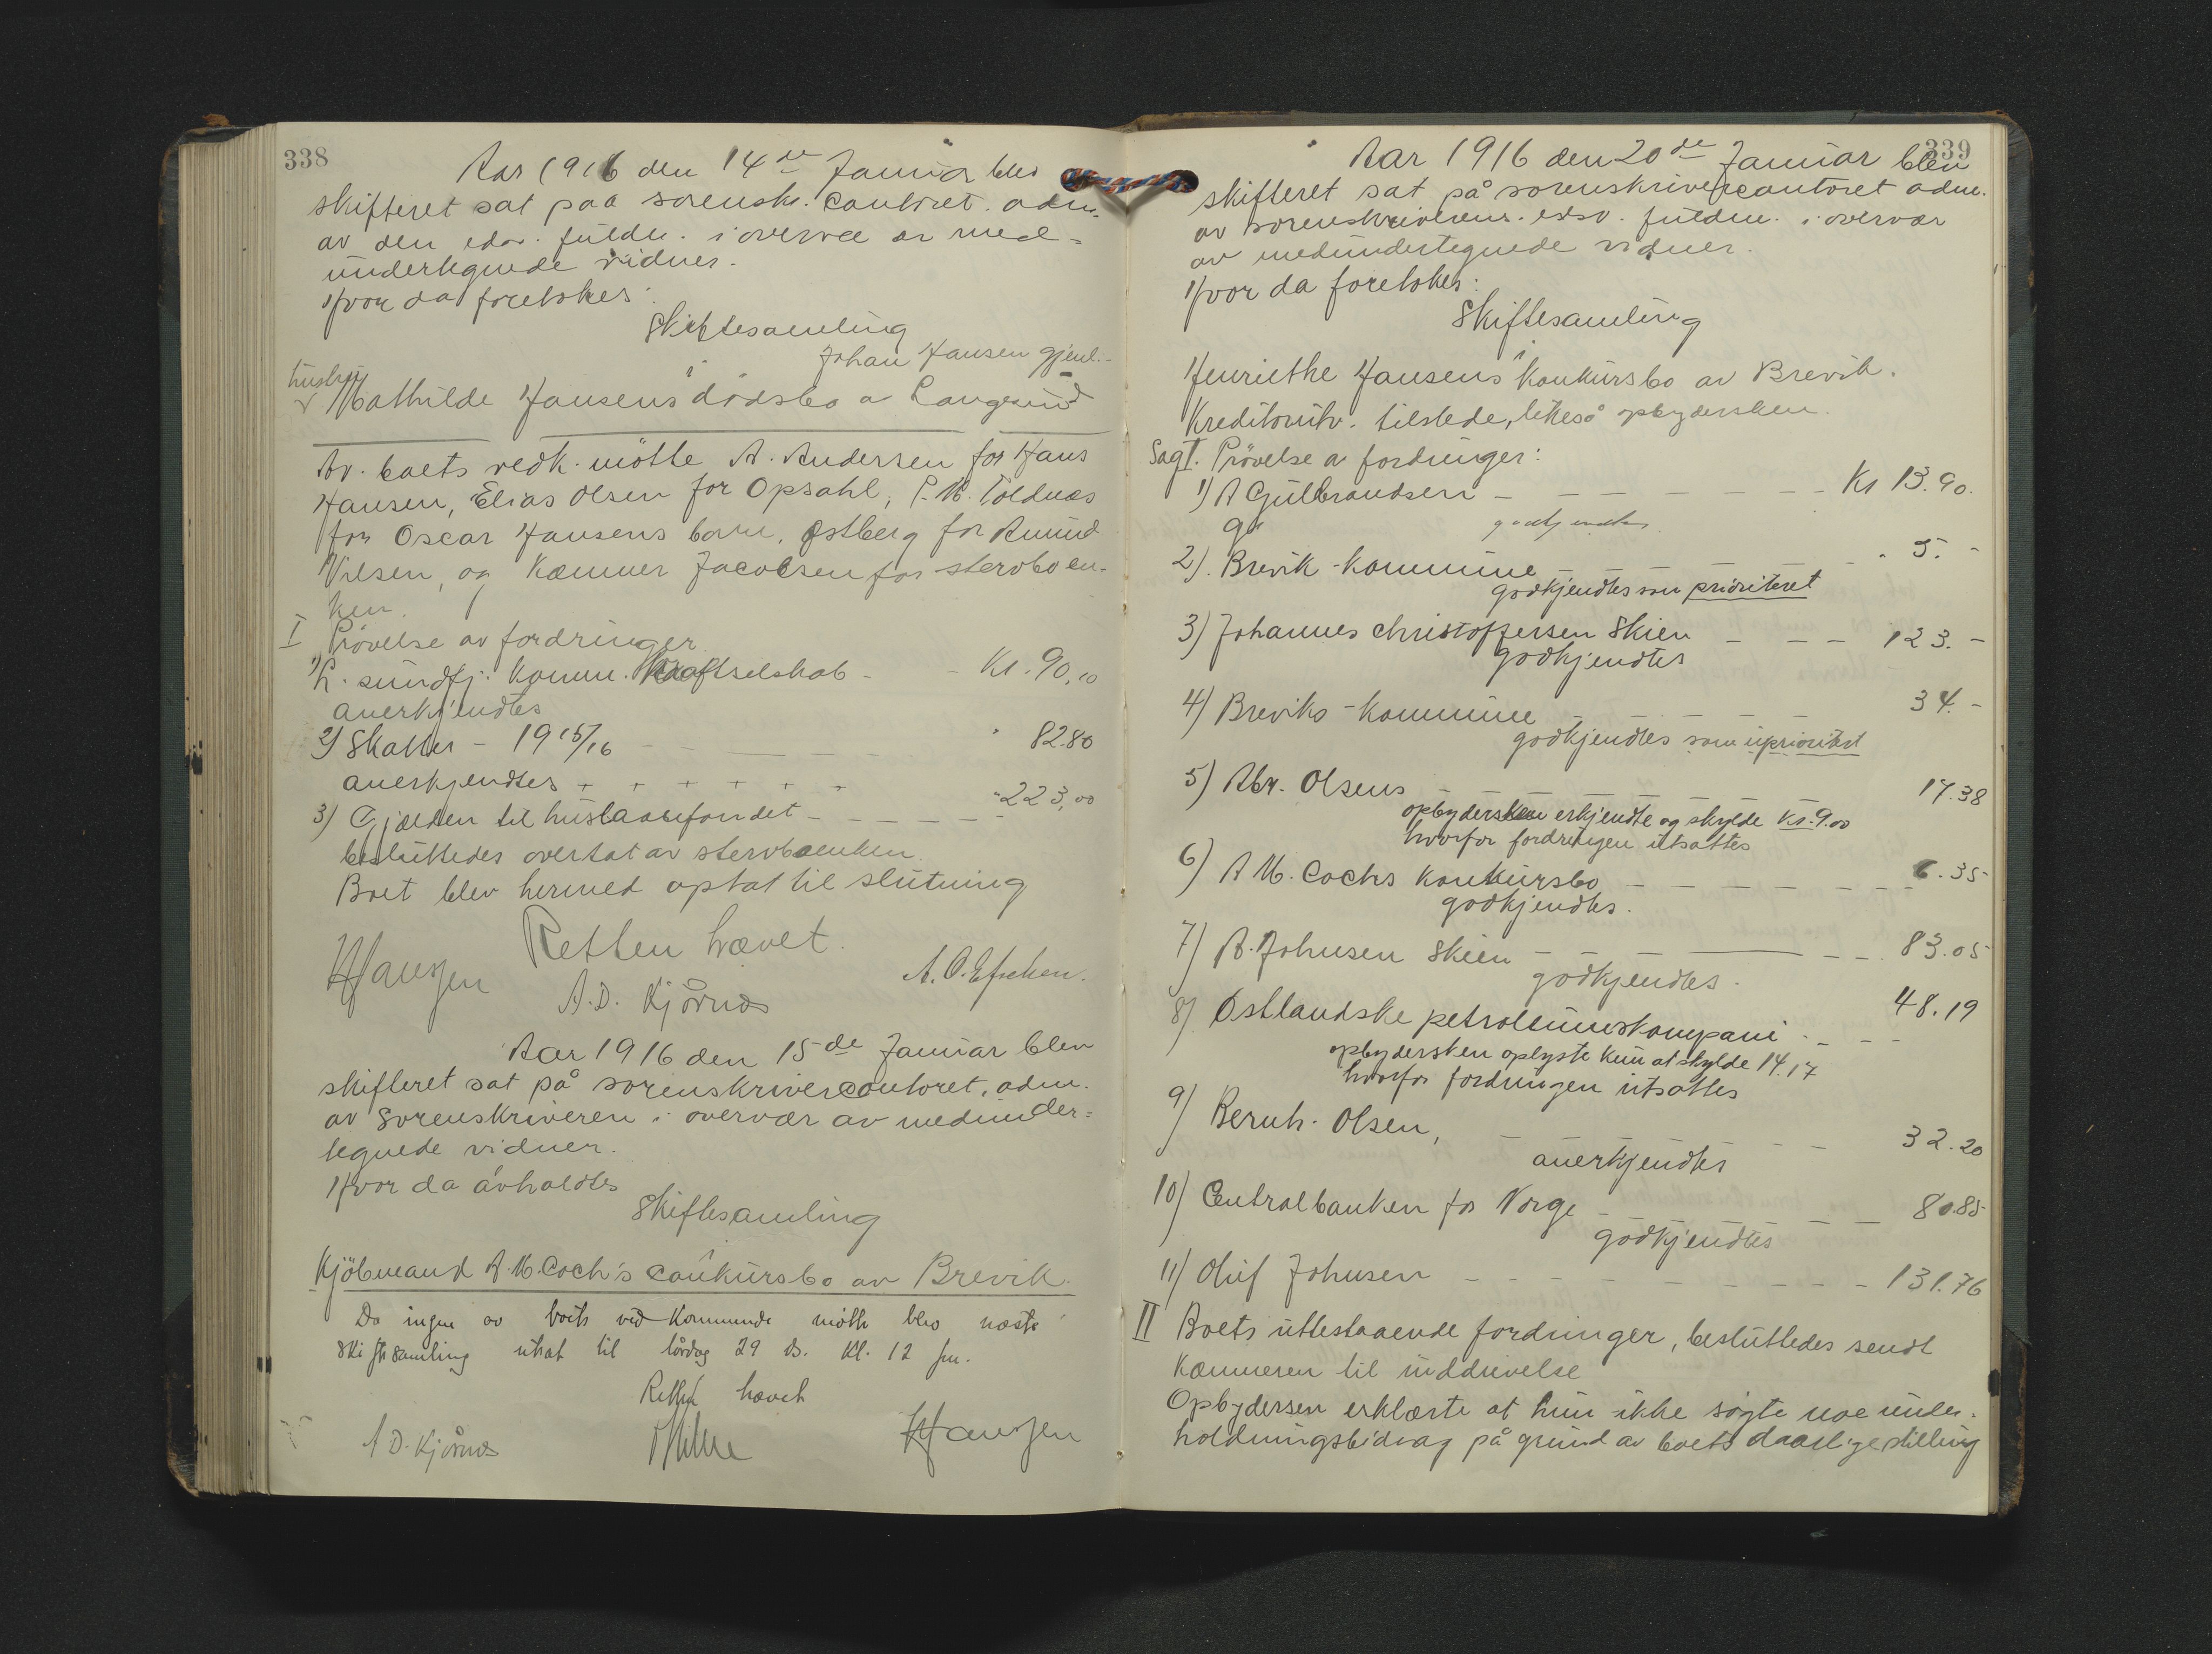 338
Aar 1916 den 14de Januar blev
skifteret sat paa sorenskr. contoret. adm.
av den edsv. fuldm. i overvær av med-
undertegnede vidner.
Hvor da foretokes:
Skiftesamling
i
Johan Hansen gjenl.
hustru
Mathilde Hansens dødsbo a Langesund
Av. boets vedk. mötte A. Andersen for Hans
Hansen, Elias Olsen for Opsahl, P. M. Toldnæs
for Oscar Hansens barn, Østberg for Amund
Nilsen, og Kæmner Jacobsen for stervboen-
ken.
I Prövelse av fordringer
1) L. sundfj. Komm. Kraftselskab - - Kr. 90,10
anerkjendtes
2) Skatter - 1915/16 - - " 82.80
anerkjendtes
3) Gjælden til huslaanefondet - - - - - " 223,00
besluttedes overtat av stervboenken.
Boet blev hermed optat til slutning
Retten hævet.
HHansen
A.D. Kjörnæs
Aar 1916 den 15de Januar blev
skifteret sat på sorenskrivercontoret, adm.
av Sorenskriveren i overvær av medunder=
tegnede vidner.
Hvor da avholdtes
Skiftesamling
i
Kjöbmand A.M. Coch's conkursbo av Brevik.
Da ingen av boets vedkommende mötte blev næste
skiftesamling utsat til lördag 29 ds. Kl. 12 fm.
Retten hævet
A D. Kjörnæs
HHansen
339
Aar 1916 den 20de Januar blev
skifteret sat på sorenskrivercontoret adm.
av sorenskriverens edsv. fuldm. i overvær
av medundertegnede vidner.
Hvor da foretokes:
Skiftesamling
i
Henriethe Hansens Konkursbo av Brevik.
Kreditorutv. tilstede, likeså opbydersken.
Sag I. Prövelse a fordringer:
1) A Gulbrandsen - - - - - - - Kr 13.90.
go godkjendtes
2). Brevik-kommune - " 5. -
godkjendtes som prioriteret
3) Johannes Christoffersen Skien - - - - 123. -
godkjendtes
4) Breviks-kommune - - - - 34. -
godkjendtes som uprioritert
5) Abr. Olsens 17.38
opbydersken erkjendte og skylde Kr. 9.00
hvorfor fordringen utsattes
6) A M. Cochs konkursbo - - - - - - - 6.35
godkjendtes.
7) A. Johnsen Skien - - - - - 83.05
godkjendtes.
8) Østlandske petroleumskompani - - - - 48.19
opbydersken oplyste kun at skylde 14.17
hvorfor fordringen utsattes
9) Bernh. Olsen, - - - - - 32.20
anerkjendtes
10) Centralbanken for Norge - - - - 80.85
godkjendtes
11) Oluf Johnsen - - - - - - - - - - 131.76
II Boets uttestaaende fordringer, besluttedes sendt
Kæmneren til inddrivelse
Opbydersen erklærte at hun ikke sögte noe under-
holdningsbidrag på grund av boets daarlige stilling